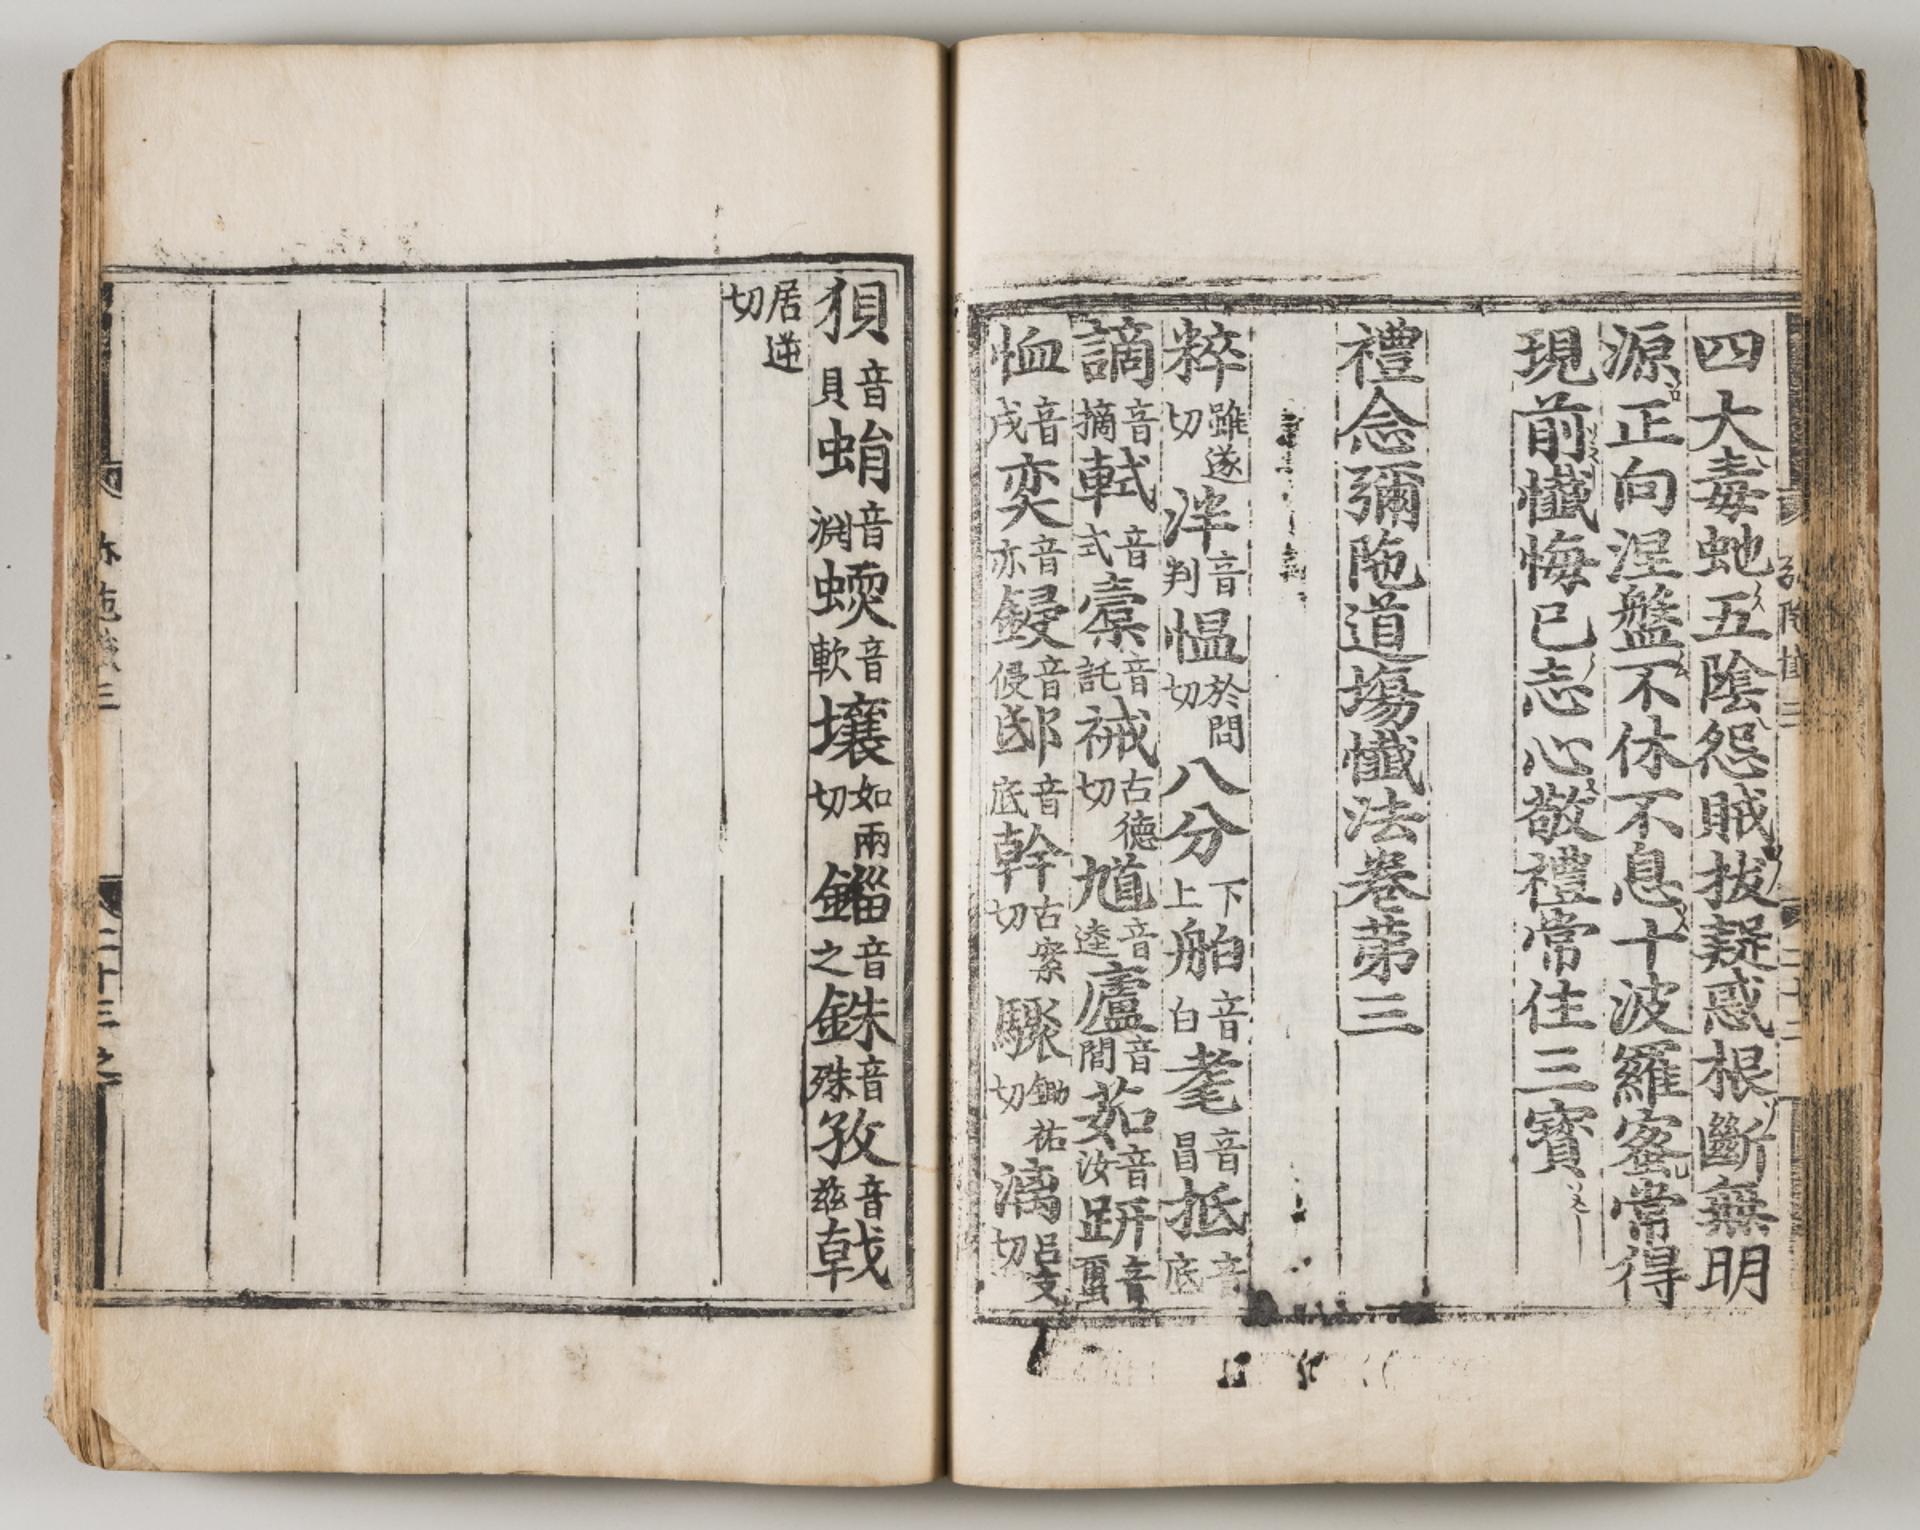 四大毒虵五陰怨賊拔疑惑根斷無明
源正向涅盤不休不息十波羅蜜常得
現前懺悔已志心敬禮常住三寶
禮念彌陁道塲懺法卷苐三
粹雖遂切泮音判愠於問切八分下上舶音白耄音昌抵音底
謫音摘軾音式橐音託裓古德切馗音逵廬音閭茹音汝趼音繭
恤音戌奕音亦鋟音侵邸音底幹古案切驟鋤祐切漓呂支切
狽音貝蜎音淵蝡音軟壤如兩切錙音之銖音殊孜音兹戟
居逆切
二十三之